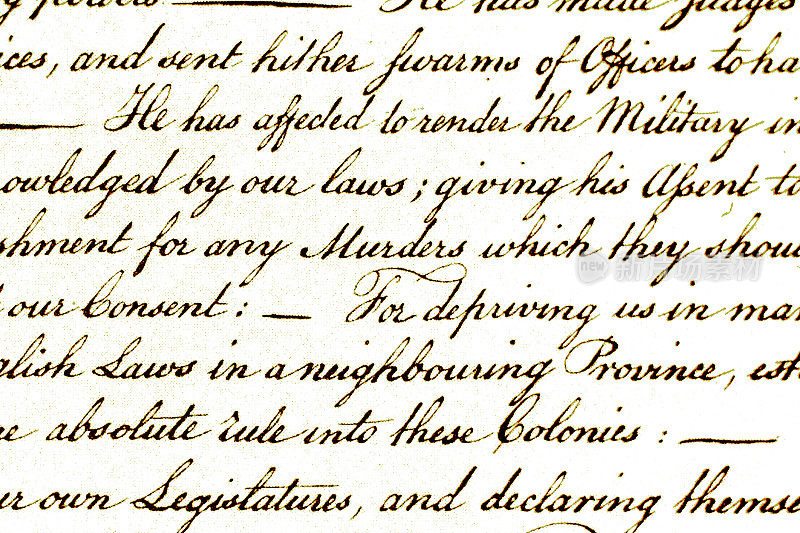 He has made Judges
ices, and sent hither swarms of Officers to ha
He has affected to render the Military in
nowledged by our laws; giving his Assent to
shment for any Murders which they shou
our Consent: — For depriving us in mar
glish Laws in a neighbouring Province, est
ne absolute rule into these Colonies : —
ur own Legislatures, and declaring themse
new 新片场素材